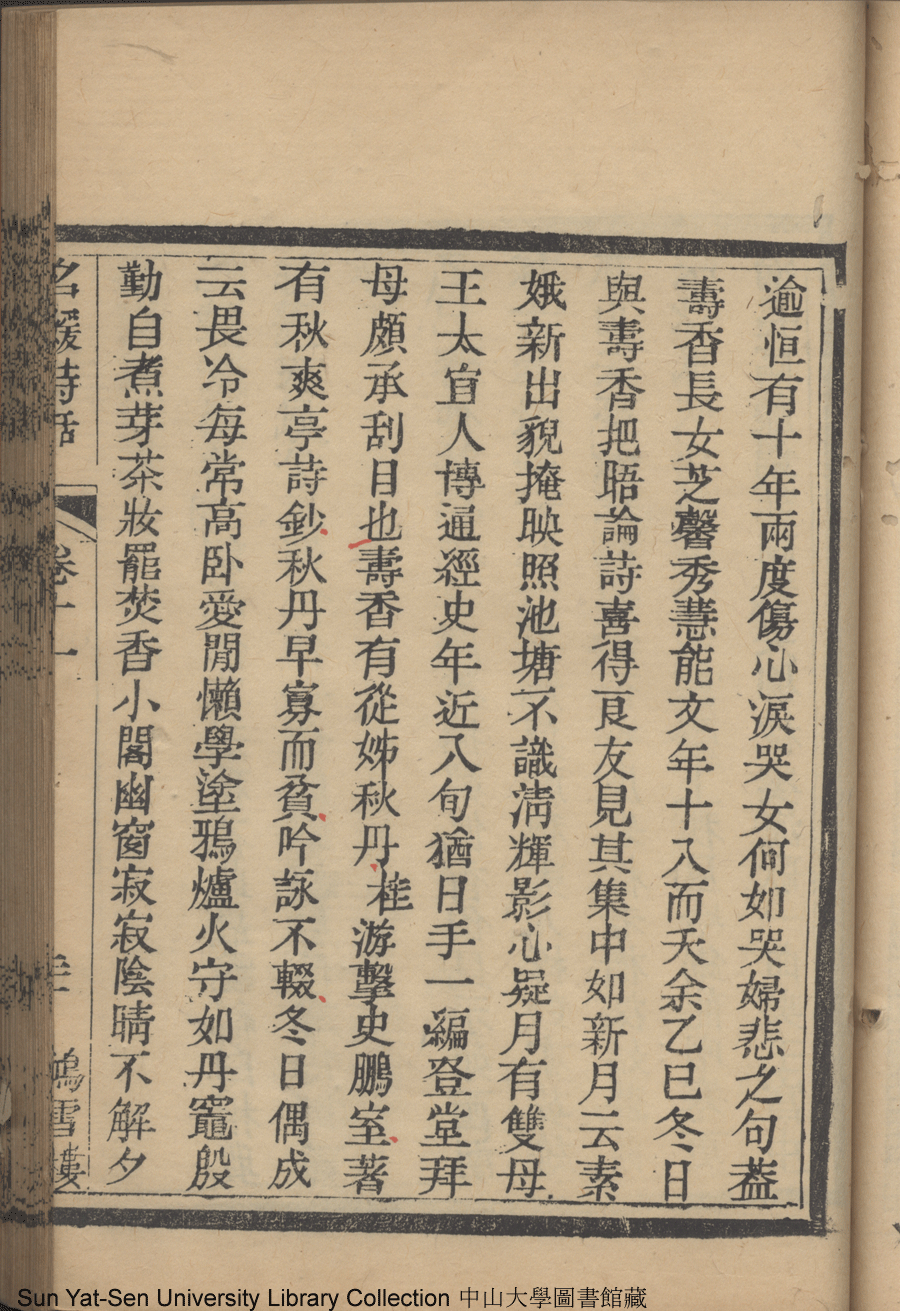 逾恒有十年兩度傷心淚哭女何如哭婦悲之句葢
壽香長女芝馨秀慧能文年十八而夭余乙巳冬日
與壽香把晤論詩喜得良友見其集中如新月云素
娥新出貌掩映照池塘不識清輝影心疑月有雙母
王太宜人博通經史年近八旬猶日手一編登堂拜
母頗承刮目也壽香有從姊秋丹桂游擊史鵬室著
有秋爽亭詩鈔秋丹早寡而貧吟詠不輟冬日偶成
云畏冷每常高卧愛閒懶學塗鴉爐火守如丹竈殷
勤自煮芽茶妝罷焚香小閣幽窗寂寂陰晴不解夕
名媛詩話 卷十一 三 鴻雪樓
Sun Yat-Sen University Library Collection 中山大學圖書館藏